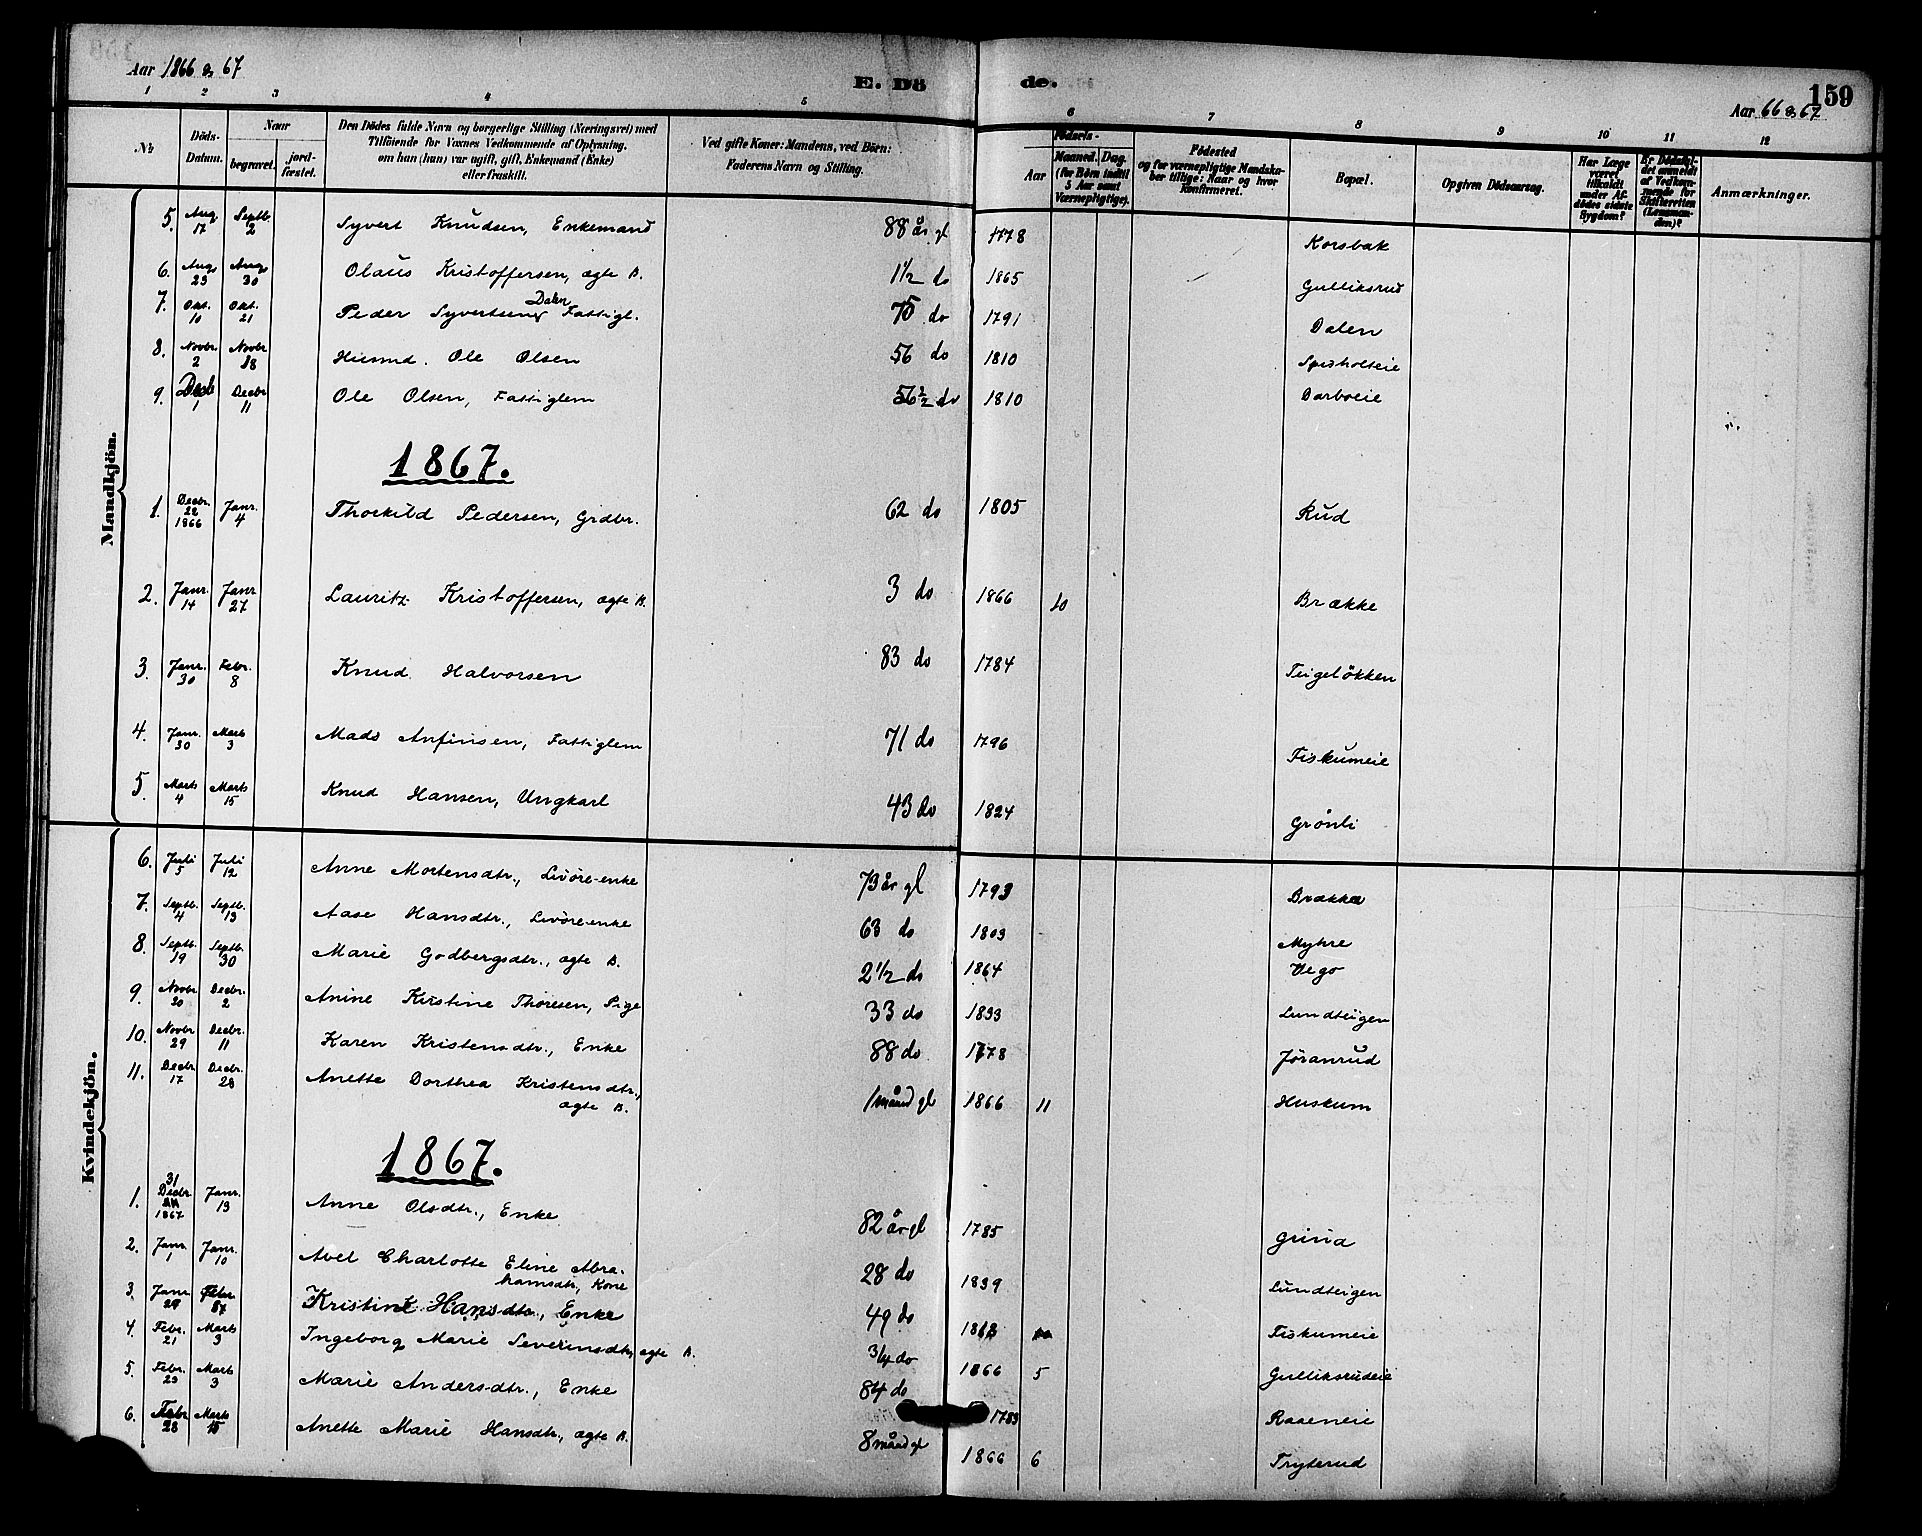 Aar 1866 & 67
E. Dö de.
159
Aar 66 & 67
1 2 3 4 5 6 7 8 9 10 11 12
No
Döds-Datum.
Naar
begravet.
jord-fæstet.
Den Dödes fulde Navn og borgerlige Stilling (Næringsvei) med
Tilföiende for Voxnes Vedkommende af Oplysning,
om han (hun) var ugift, gift, Enkemand (Enke)
eller fraskilt.
Ved gifte Koner: Mandens, ved Börn:
Faderens Navn og Stilling.
Födsels-
Aar
Maaned. Dag.
(for Börn indtil
5 Aar samt
Værnepligtige).
Födested
og for værnepligtige Mandska-
ber tillige: Naar og hvor
konfirmeret.
Bopæl.
Opgiven Dödsaarsag.
Har Læge
været
tilkaldt
under Af-
dödes sidste
Sygdom?
Er Dödsfal-
det anmeldt
af Vedkom-
mende for
Skifteretten
(Lensman-
den)?
Anmærkninger.
Mandkjön.
5. Aug 17 Septb. 2 Syvert Knudsen, Enkemand 88 år gl 1778 Korsbak
6. Aug 23 Aug 30 Olaus Kristoffersen, ægte B. 1 1/2 do 1865 Gulliksrud
7. Okt. 10 Okt. 21 Peder Syvertsen Dalen Fattigl. 75 do 1791 Dalen
8. Novbr 2 Novbr 18 Husmd. Ole Olsen 56 do 1810 Spisholteie
9. Decb 1 Decbr 11 Ole Olsen, Fattiglem 56 1/2 do 1810 Darboeie
1867.
1. Decbr. 22 1866 Janr. 4 Thorkild Pedersen, Grdbr. 62 do 1805 Rud
2. Janr. 14 Janr 27 Lauritz Kristoffersen, ægte B. 3 do 1866 10 Brække
3. Janr. 30 Febr. 8 Knud Halvorsen 83 do 1784 Teigeløkken
4. Janr. 30 Marts 3 Mads Anfinsen, Fattiglem 71 do 1796 Fiskumeie
5. Marts 4 Marts 15 Knud Hansen, Ungkarl 43 do 1824 Grønli
Kvindekjön.
6. Juli 5 Juli 12 Anne Mortensdtr., Livøre-enke 73 år gl 1793 Brække
7. Septb. 4 Septb. 13 Aase Hansdtr., Livøre-enke 63 do 1803 Myhre
8. Septb. 19 Septb. 30 Marie Godbergsdtr., ægte B. 2 1/2 do 1864 Vego
9. Novbr 20 Decbr. 2 Anine Kristine Thoresen, Pige 33 do 1833 Lundteigen
10. Novbr 29 Decbr. 11 Karen Kristensdtr., Enke 88 do 1778 Jøranrud
11. Decbr 17 Decbr. 28 Anette Dorthea Kristensdtr.,
ægte B. 1 måned gl 1866 11 Huskum
1867.
1. 31 Decbr. 1867 Janr. 13 Anne Olsdtr., Enke 82 år gl 1785 Grina
2. Janr. 1 Janr. 10 Avel Charlotte Eline Abra-
hamsdtr., Kone 28 do 1839 Lundteigen
3. Janr. 29 Febr. 17 Kristine Hansdtr., Enke 49 do 1818 Fiskumeie
4. Febr. 21 Marts 3 Ingeborg Marie Severinsdtr, ægte B. 3/4 do 1866 5 Gulliksrudeie
5. Febr. 23 Marts 3 Marie Andersdtr., Enke 84 do 1783 Raaeneie
6. Febr 28 Marts 15 Anette Marie Hansdtr., ægte B. 8 måned gl 1866 6 Tryterud